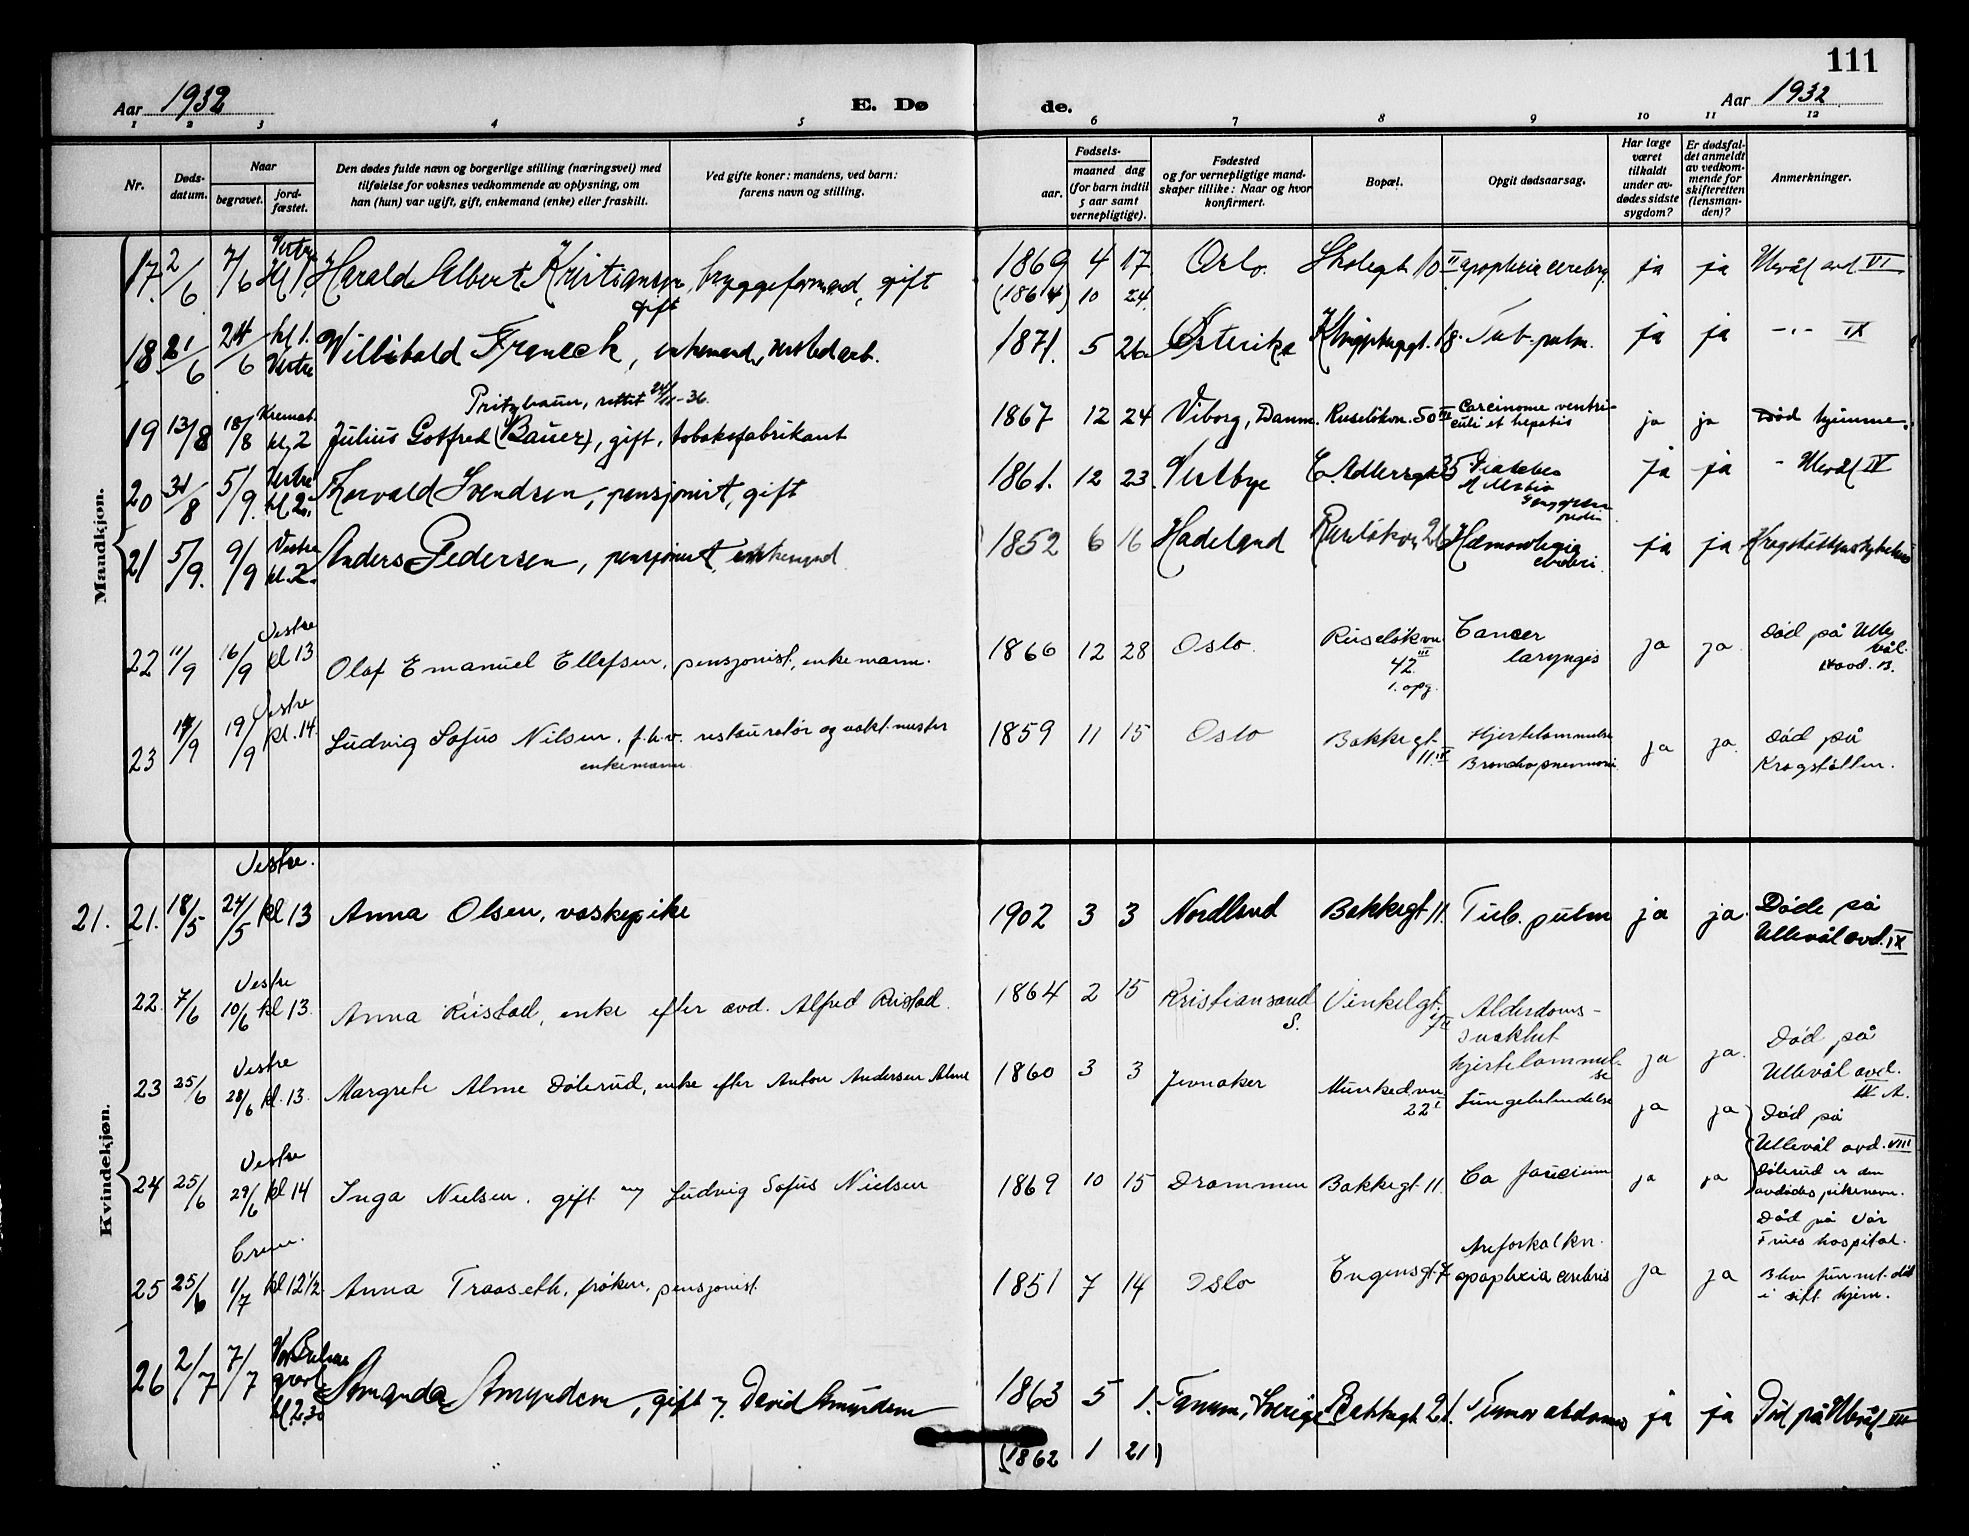 111
Aar 1932
E. Dø
de.
Aar 1932
1 2 3 4 5 6 7 8 9 10 11 12
Nr.
Døds-
datum.
Naar
begravet.
jord-
fæstet.
Den dødes fulde navn og borgerlige stilling (næringsvei) med
tilføielse for voksnes vedkommende av oplysning, om
han (hun) var ugift, gift, enkemand (enke) eller fraskilt.
Ved gifte koner: mandens, ved barn:
farens navn og stilling.
Fødsels-
aar.
maaned dag
(for barn indtil
5 aar samt
vernepligtige).
Fødested
og for vernepligtige mand-
skaper tillike: Naar og hvor
konfirmert.
Bopæl.
Opgit dødsaarsag.
Har læge
været
tilkaldt
under av-
dødes sidste
sygdom?
Er dødsfal-
det anmeldt
av vedkom-
mende for
skifteretten
(lensman-
den)?
Anmerkninger.
Mandkjøn.
17. 2/6 7/6 Vestre Kl 1. Harald Albert Kristiansen, bryggeformand, gift 1869 4 17 Oslo. 10 II apoplexia cerebri ja ja Ulevål avd VI
(1864) 10 24
gift
18 21/6 24/6 kl 1. Vestre Willibald Franeck, enkemand, 1871. 5 26 Østerike 18. Tub. pulm. ja ja -"- IX
Pritzbauer, rettet 24/11-36.
19 13/8 18/8 Kremat. kl. 2 Julius Gotfred (Bauer), gift, tobaksfabrikant 1867 12 24 Viborg, Danm. Ruseløkvn. 50 III Carcinome ventri-
culi et hepatis ja ja Død hjemme.
20 31/8 5/9. Vestre kl 2. Thorvald Svendsen, pensjonist, gift 1861. 12 23. Vestbye C. Adlersgt 35 Diabetes
Mellitus
ja ja - Ulevål IV
21 5/9. 9/9 Vestre kl. 2. Anders Pedersen, pensjonist, enkemand. 1852 6 16 Hadeland Ruseløkvn 26 Hæmorrhagia
cerebri. ja ja
22 11/9 16/9 Vestre kl 13 Olaf Emanuel Ellefsen, pensjonist, enkemann. 1866 12 28 Oslo. Ruseløkvn
42 III
1. opg. Cancer
laryngis ja ja. Død på Ulle
vål.
avd. B.
23 14/9 19/9 Vestre kl. 14. Ludvig Sofus Nilsen, f.h.v. restauratør og vaktmester
enkemann. 1859 11 15 Oslo Bakkegt.
11. IV Hjertelammelse
Bronchopneumoni. ja ja. Død på
Krogstøtten.
Kvindekjøn.
21. 21. 18/5 24/5 Vestre. kl 13 Anna Olsen, vaskepike 1902 3 3 Nordland Bakkegt 11. Tub. pulm ja ja. Døde på
Ullevål avd. IX
22. 7/6 10/6 Vestre kl 13. Anna Riistad, enke efter avd. Alfred Riistad. 1864 2 15 Kristiansand
S. Vinkelgt. Alderdoms-
svakhet
hjertelammel-
se ja ja. Død på
Ullevål avd.
IV A.
23 25/6 28/6 Vestre kl. 13. Margrete Alme Dølerud, enke efter Anton Andersen Alme 1860 3 3 Jevnaker Munkedvn
22 I Lungebetendelse ja ja Død på
Ullevål avd. VIII
Dølerud er den
avdødes pikenavn.
24 25/6 29/6 Vestre kl 14 Inga Nielsen, gift m/ Ludvig Sofus Nielsen 1869 10 15 Drammen Bakkegt. 11. Ca faucium ja ja Død på Vår
Frues hospital.
25 25/6 1/7 Crem. kl 12 1/2. Anna Traaseth, frøken, pensjonist. 1851 7 14 Oslo Engensgt. 7 Areforkalkn.
apoplexia cerebris ja ja Blev funnet død
i sitt hjem.
26 2/7 7/7 kl 2.30 Amanda Amundsen, gift m. David Amundsen 1863 5 1. Tanum, Sverige Bakkegt 21. Tumor abdomis ja ja Død på Ulevål VIII
(1862 1 21)